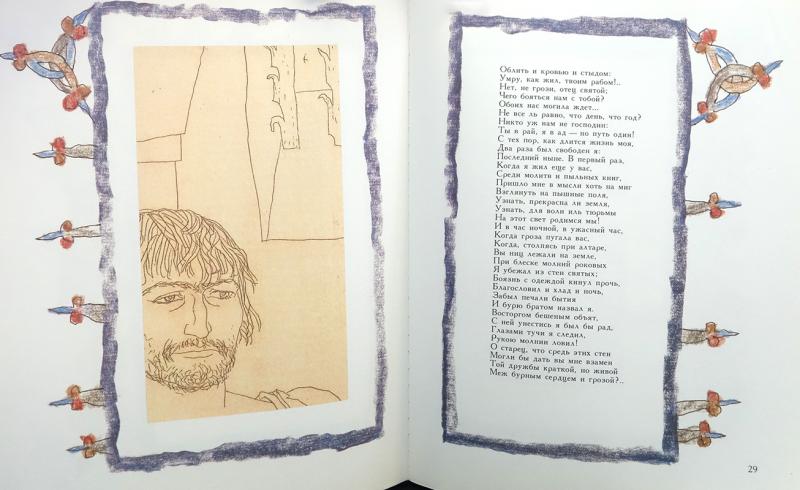 Облить и кровью и стыдом:
Умру, как жил, твоим рабом!..
Нет, не грози, отец святой;
Чего бояться нам с тобой?
Обоих нас могила ждет...
Не все ль равно, что день, что год?
Никто уж нам не господин:
Ты в рай, я в ад — но путь один!
С тех пор, как длится жизнь моя,
Два раза был свободен я:
Последний ныне. В первый раз,
Когда я жил еще у вас,
Среди молитв и пыльных книг,
Пришло мне в мысли хоть на миг
Взглянуть на пышные поля,
Узнать, прекрасна ли земля,
Узнать, для воли иль тюрьмы
На этот свет родимся мы!
И в час ночной, в ужасный час,
Когда гроза пугала вас,
Когда, столпясь при алтаре,
Вы ниц лежали на земле,
При блеске молний роковых
Я убежал из стен святых;
Боязнь с одеждой кинул прочь,
Благословил и хлад и ночь,
Забыл печали бытия
И бурю братом назвал я.
Восторгом бешеным объят,
С ней унестись я был бы рад,
Глазами тучи я следил,
Рукою молнии ловил!
О старец, что средь этих стен
Могли бы дать вы мне взамен
Той дружбы краткой, но живой
Меж бурным сердцем и грозой?..
29